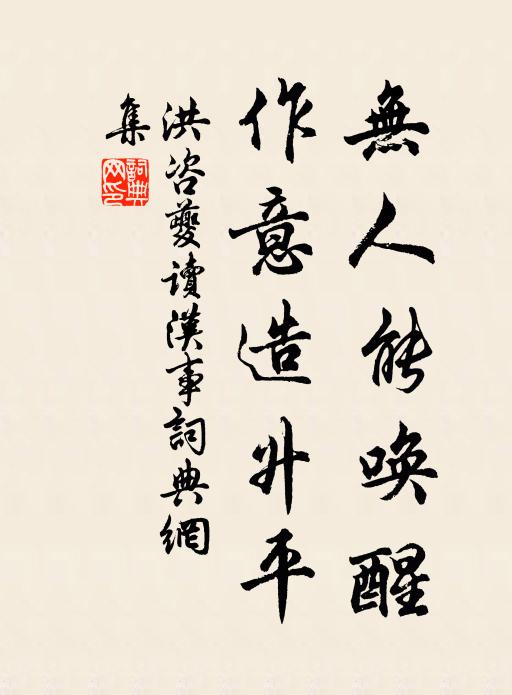 無人能喚醒
作意造升平
洪咨夔讀漢事詞典網
集
詞典網印